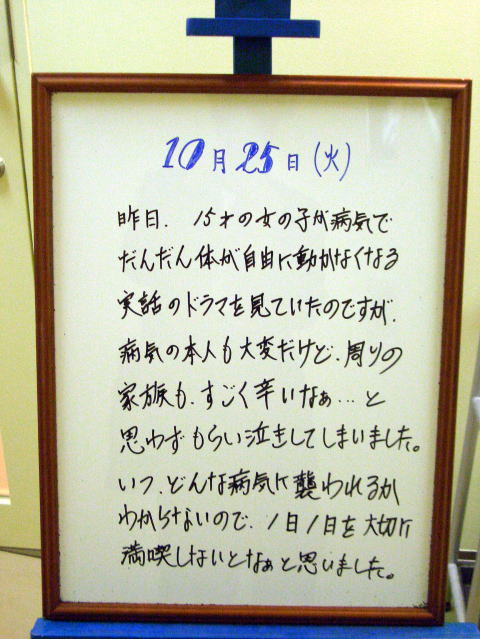 10月25日(火)
昨日、15才の女の子が病気で
だんだん体が自由に動かなくなる
実話のドラマを見ていたのですが、
病気の本人も大変だけど、周りの
家族も、すごく辛いなぁ…と
思わずもらい泣きしてしまいました。
いつ、どんな病気に襲われるか
わからないので、1日1日を大切に
満喫しないとなぁと思いました。